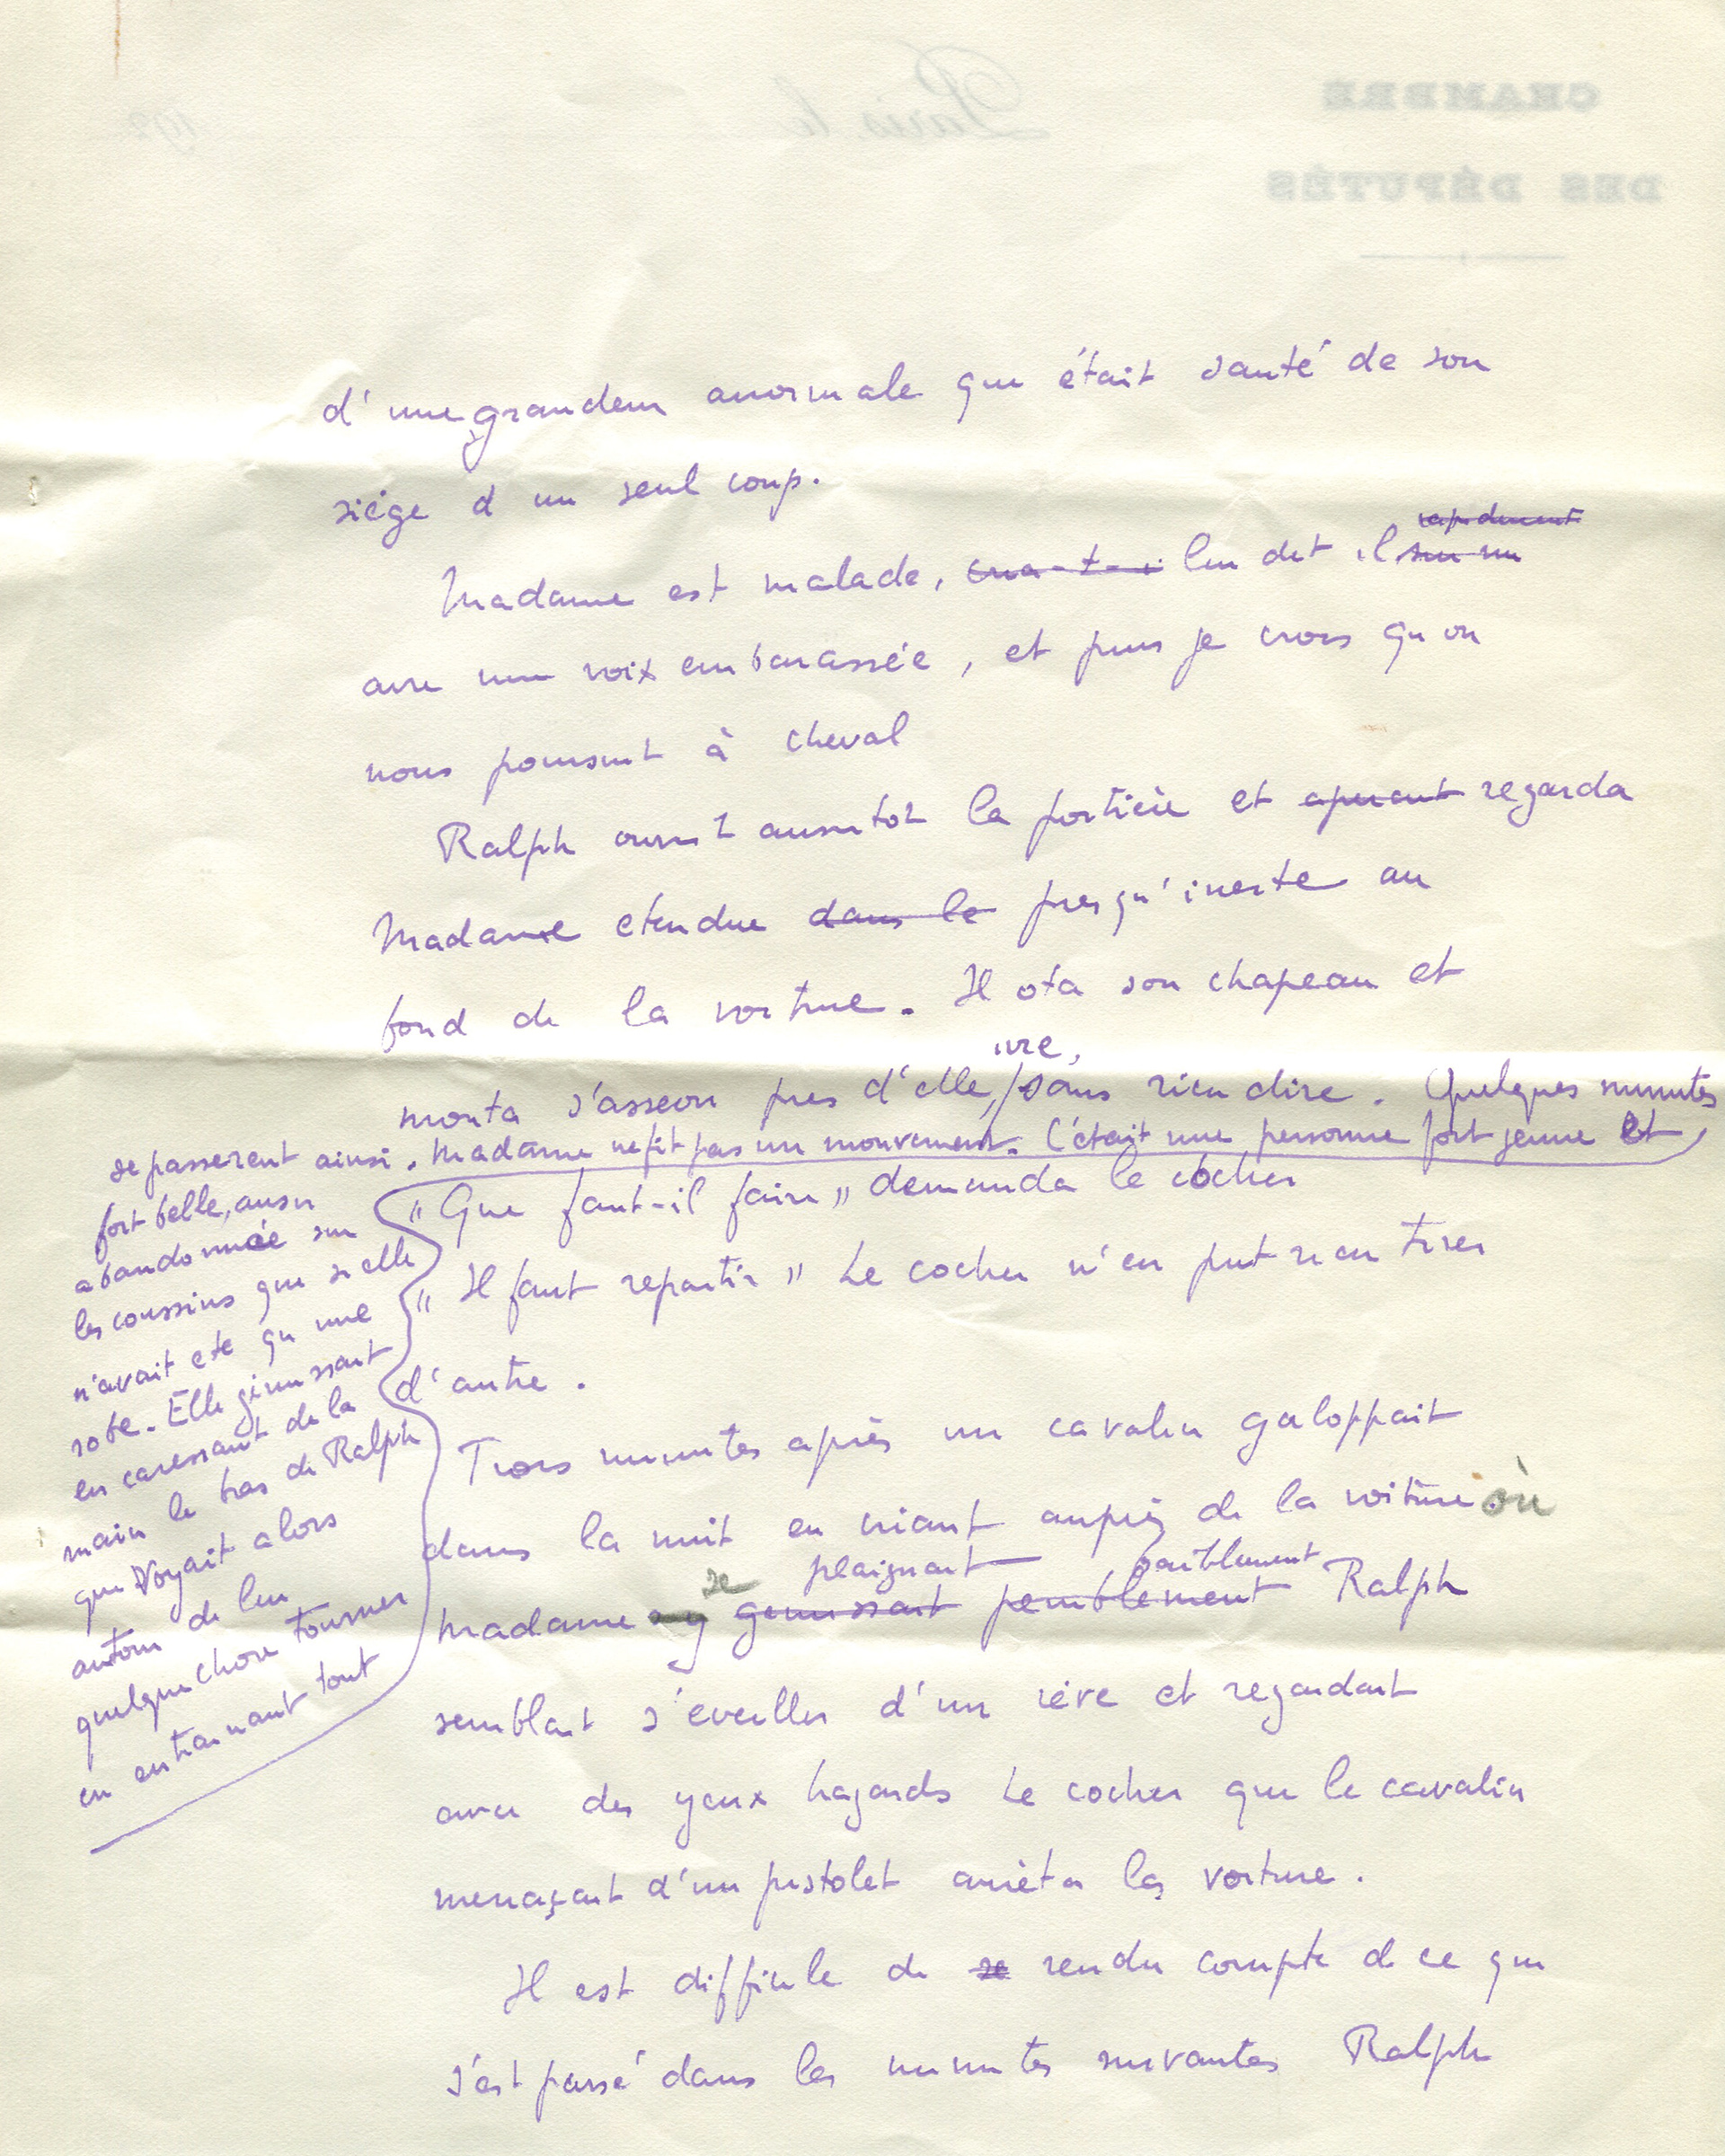 d'une grandeur anormale qui était sauté de son
siège d un seul coup.
Madame est malade, cria-t-i lui dit il sur un
rapidement
avec une voix embarassée, et puis je crois qu on
nous poursuit à cheval
Ralph ouvrit aussitot la portière et aperçut regarda
Madame etendue dans le presqu'inerte au
fond de la voiture. Il ota son chapeau et
monta s'asseoir pres d'elle, ivre, sans rien dire. Quelques minutes
se passerent ainsi. Madame ne fit pas un mouvement. C'était une personne fort jeune et
fort belle, aussi
abandonnée sur
les coussins que si elle
n'avait ete qu une
robe. Elle gémissait
en caressant de la
main le bras de Ralph
qui voyait alors
autour de lui
quelque chose tourner
en entrainant tout
"Que faut-il faire" demanda le cocher
"Il faut repartir" Le cocher n'en put rien tirer
d'autre.
Trois minutes après un cavalier galoppait
dans la nuit en criant auprès de la voiture où
se plaignait paisiblement
madame gemissait peniblement Ralph
semblait s'eveiller d'un rêve et regardait
avec des yeux hagards Le cocher que le cavalier
menaçait d'un pistolet arrèta la voiture.
Il est difficile de se rendre compte de ce qui
s'est passé dans les minutes suivantes Ralph
CHAMBRE
DES DÉPUTÉS
Paris, le
192